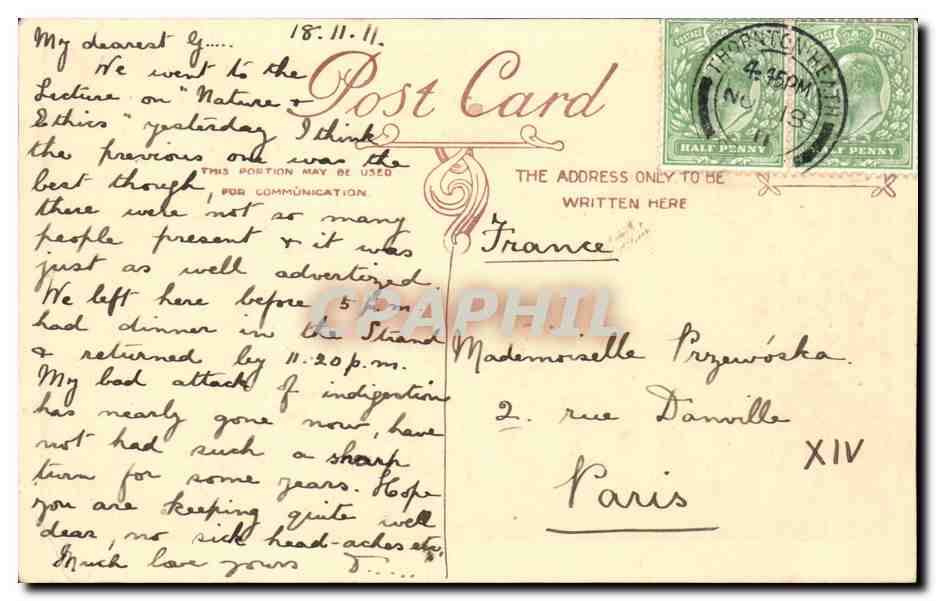 18.11.11.
My dearest G.....
We went to the
Lecture on "Nature &
Ethics" yesterday I think
the previous one was the
best though,
there were not so many
people present & it was
just as well advertized.
We left here before 5 p.m.
had dinner in the Strand
& returned by 11.20 p.m.
My bad attack of indigestion
has nearly gone now, have
not had such a sharp
turn for some years. Hope
you are keeping quite well
dear, no sick head-aches etc.
Much love yours D.....
Post Card
THIS PORTION MAY BE USED
FOR COMMUNICATION.
THE ADDRESS ONLY TO BE
WRITTEN HERE
France
Mademoiselle Przewóska.
2. rue Danville
XIV
Paris
POSTAGE
HALF PENNY
POSTAGE REVENUE
HALF PENNY
THORNTON HEATH
4.45PM
NO 18
11
CPAPHIL